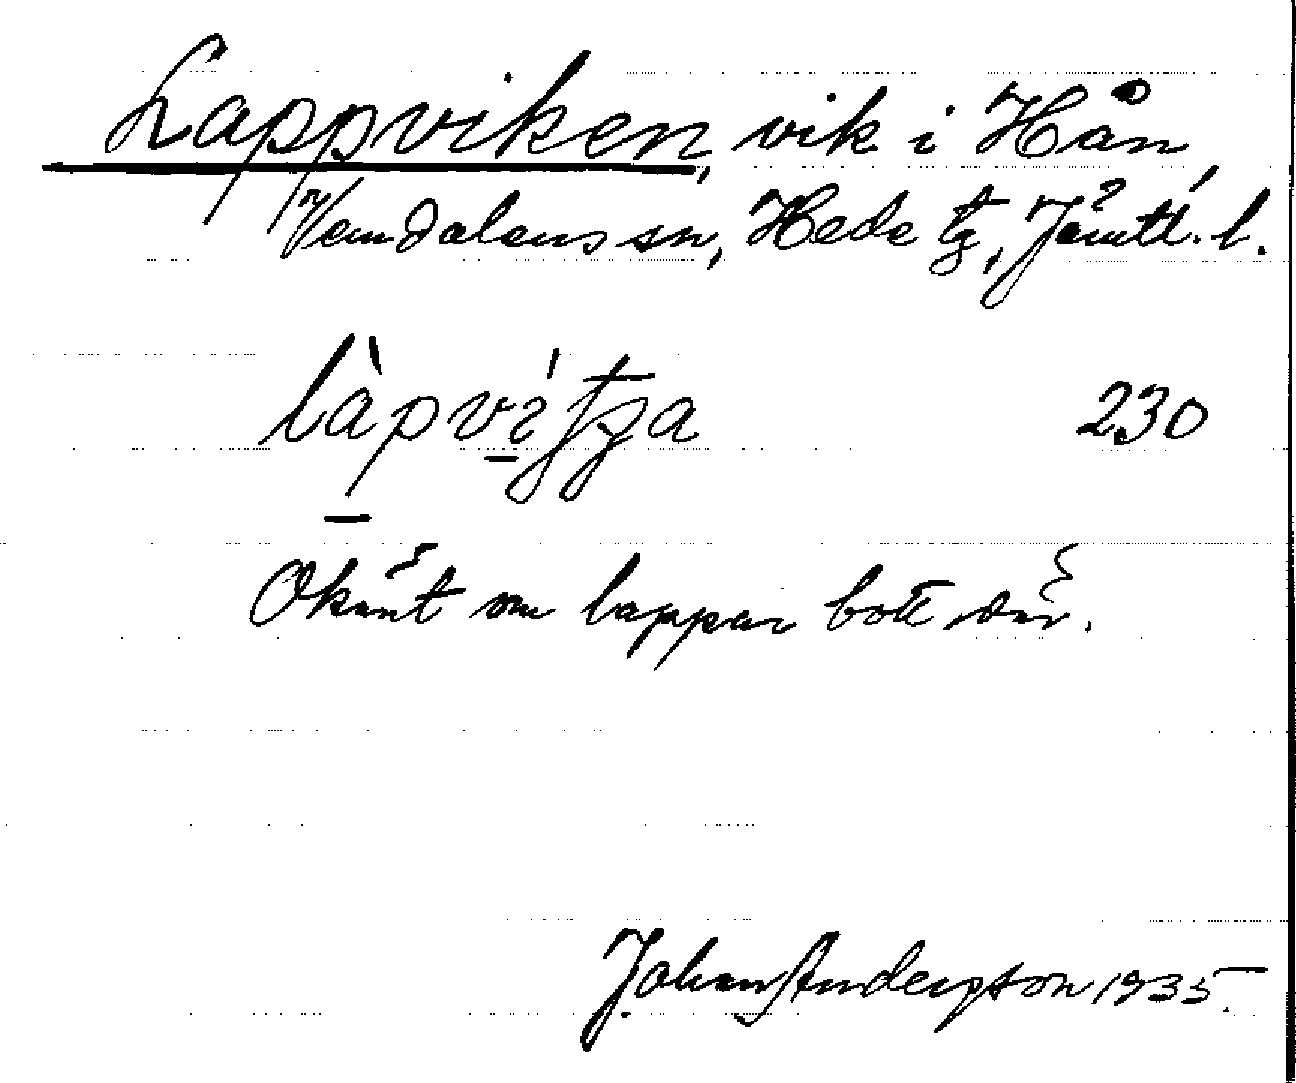 Lappviken, vik i Hån,
Vemdalens sn, Hede tg, Jämtl. l.
làpvítja 230
Okänt om lappar bott där.
Johan Anderpson 1935.